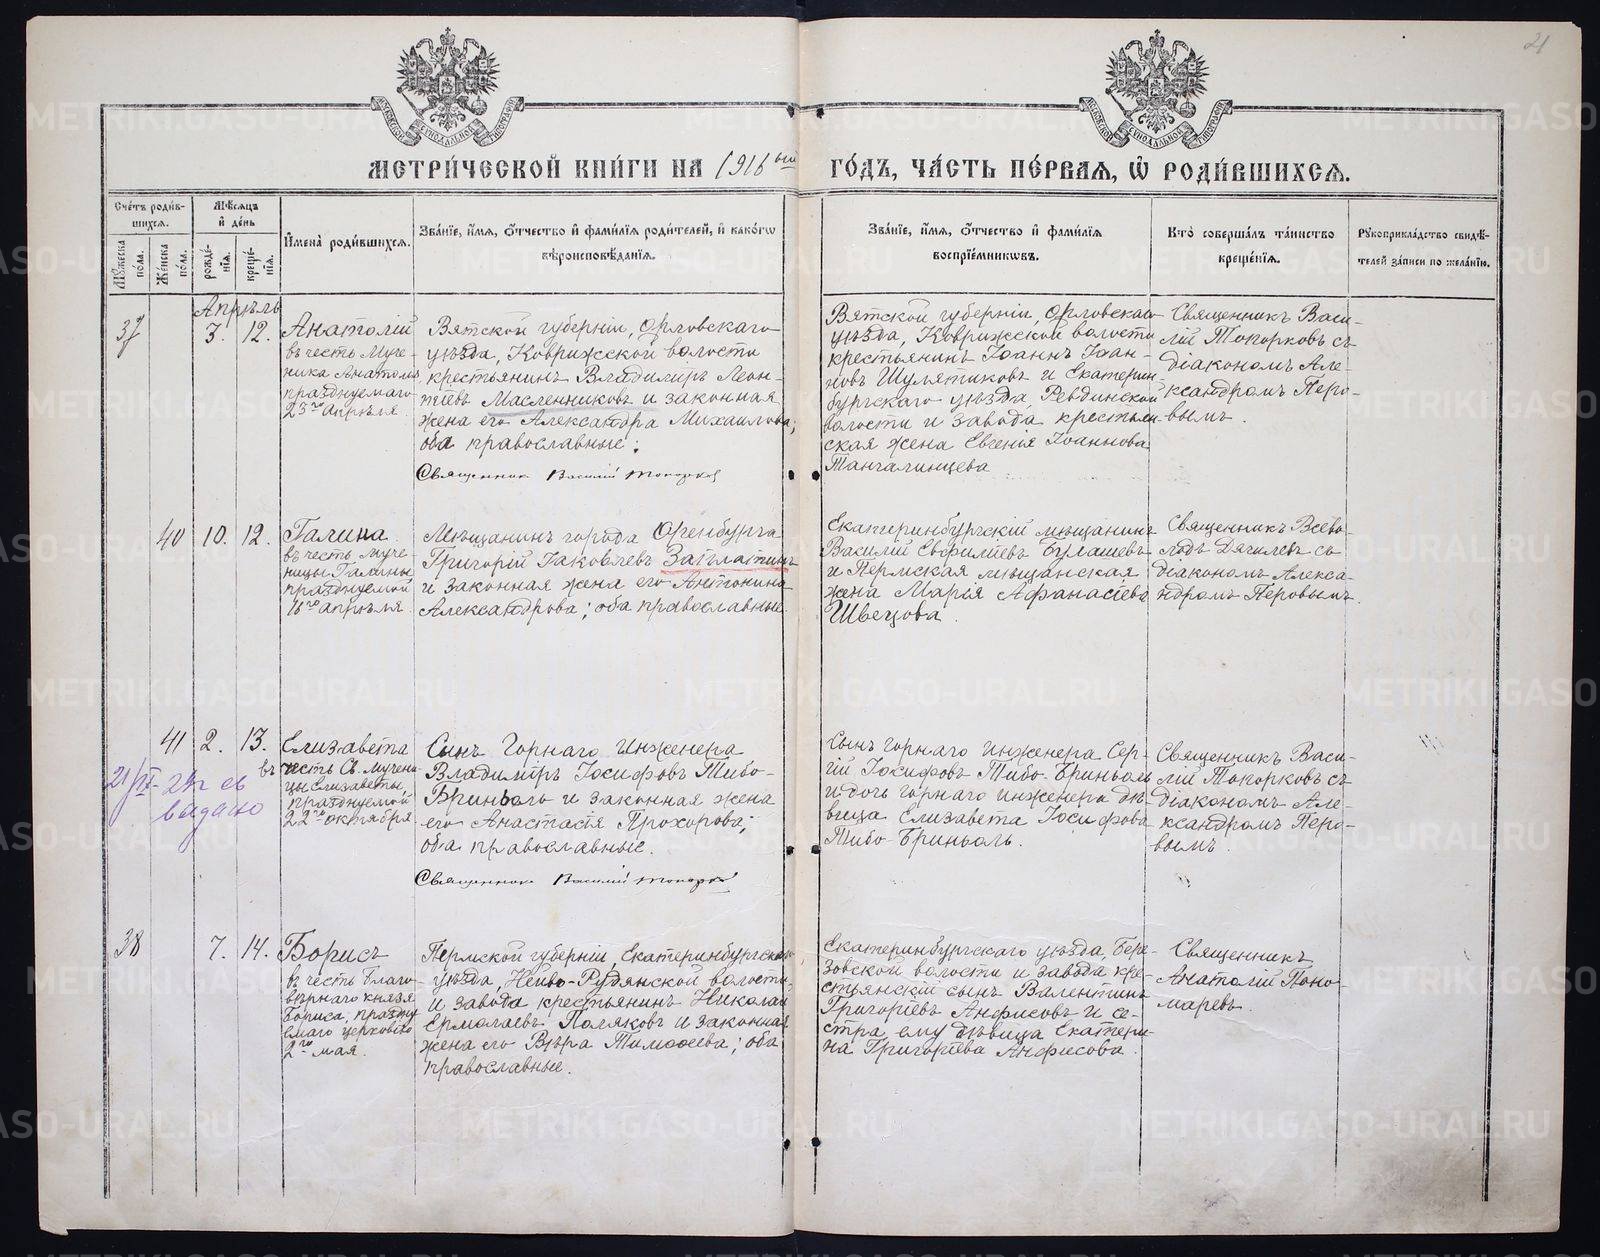 21
МОСКОВСКОЙ СѴНОДАЛЬНОЙ ТИПОГРАФІИ
МОСКОВСКОЙ СѴНОДАЛЬНОЙ ТИПОГРАФІИ
МЕТРИ́ЧЕСКОЙ КНИ́ГИ НА 1916 ый ГО́ДЪ, ЧА́СТЬ ПЕ́РВАЯ, Ѽ РОДИ́ВШИХСЯ.
Сче́тъ роди́в-
шихся.
Мѣ́сяцъ
и҆ де́нь
Мꙋ́жеска
по́ла.
Же́нска
по́ла.
рожде́-
нїя.
креще́-
нїя.
И҆мена̀ роди́вшихся.
Зва́нїе, и҆́мя, ѻ҆́тчество и҆ фами́лїя роди́телей, и҆ како́гѡ
вѣроисповѣ́данїя.
Зва́нїе, и҆́мя, ѻ҆́тчество и҆ фами́лїя
воспрїе́мникѡвъ.
Кто̀ соверша́лъ та́инство
креще́нїя.
Рꙋкоприкла́дство свидѣ́-
телей за́писи по жела́нїю.
Апрѣль
37
3. 12.
Анатолій
въ честь Муче-
ника Анатолія
празднуемаго
23го апрѣля
Вятской губерніи, Орловскаго
уѣзда, Коврижской волости
крестьянинъ Владиміръ Леон-
тіевъ Масленниковъ и законная
жена его Александра Михаилова;
оба православные;
Священник Василій Топорков
Вятской губерніи, Орловскаго
уѣзда, Коврижской волости
крестьянинъ Іоаннъ Іоан-
новъ Шулятиковъ и Екатерин-
бургскаго уѣзда, Ревдинской
волости и завода, крестьян-
ская жена Евгенія Іоаннова
Тангалинцева
Священникъ Васи-
лій Топорковъ съ
діакономъ Але-
ксандромъ Перо-
вымъ.
40 10. 12.
Галина
въ честь муче-
ницы Галины
празднуемой
16го апрѣля
Мѣщанинъ города Оренбурга
Григорій Іаковлевъ Заплатинъ
и законная жена его Антонина
Александрова; оба православные
Екатеринбургскій мѣщанинъ
Василій Евфиміевъ Булашевъ
и Пермская мѣщанская
жена Марія Афанасіева
Швецова.
Священникъ Всево-
лодъ Дягилевъ съ
діакономъ Алекса-
ндромъ Перовымъ.
41 2. 13.
Елизавета
въ честь Св. мучени-
цы Елизаветы,
празднуемой
22го октября
21/IX-
выдано
Сынъ Горнаго Инженера
Владиміръ Іосифовъ Тибо-
Бриньоль и законная жена
его Анастасія Прохорова;
оба православные.
Священник Василій Топорков
Сынъ горнаго Инженера Сер-
гій Іосифовъ Тибо-Бриньоль
и дочь горнаго инженера дѣ-
вица Елизавета Іосифова
Тибо-Бриньоль.
Священникъ Васи-
лій Топорковъ съ
діакономъ Але-
ксандромъ Перо-
вымъ.
38
7. 14.
Борисъ
въ честь Благо-
вѣрнаго князя
Бориса, праздну-
емаго церковію
2го мая.
Пермской губерніи, Екатеринбургскаго
уѣзда, Нейво-Рудянской волости
и завода крестьянинъ Николай
Ермолаевъ Поляковъ и законная
жена его Вѣра Тимоѳеева; оба
православные.
Екатеринбургскаго уѣзда, Бере-
зовской волости и завода кре-
стьянскій сынъ Валентинъ
Григоріевъ Анфисовъ и се-
стра ему дѣвица Екатери-
на Григоріева Анфисова.
Священникъ
Анатолій Поно-
маревъ.